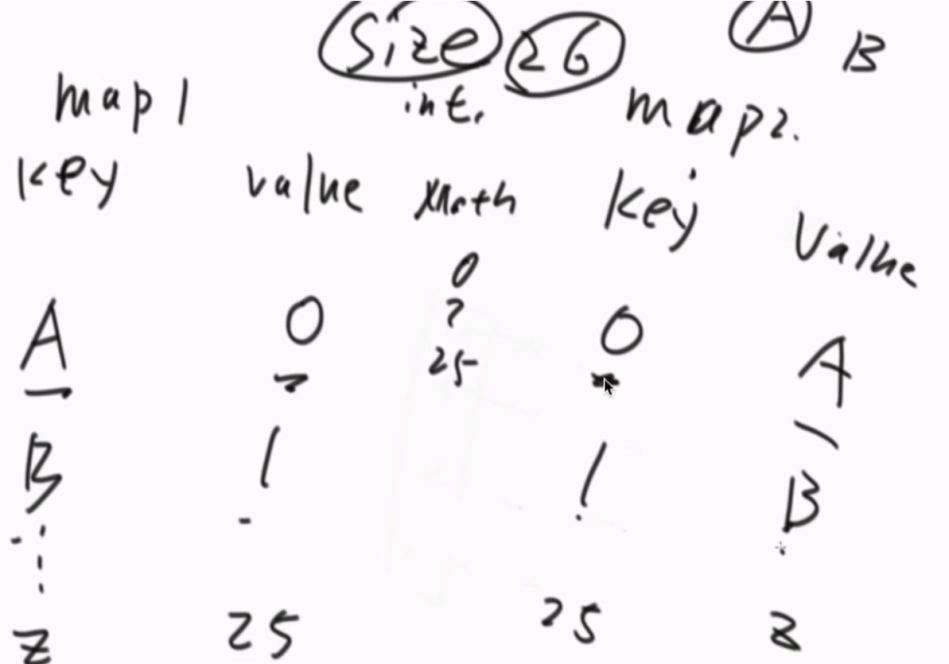 size 26 A B
map1 int. map2.
key value Math key value
0
A 0 ? 0 A
25
B 1 1 B
Z 25 25 Z